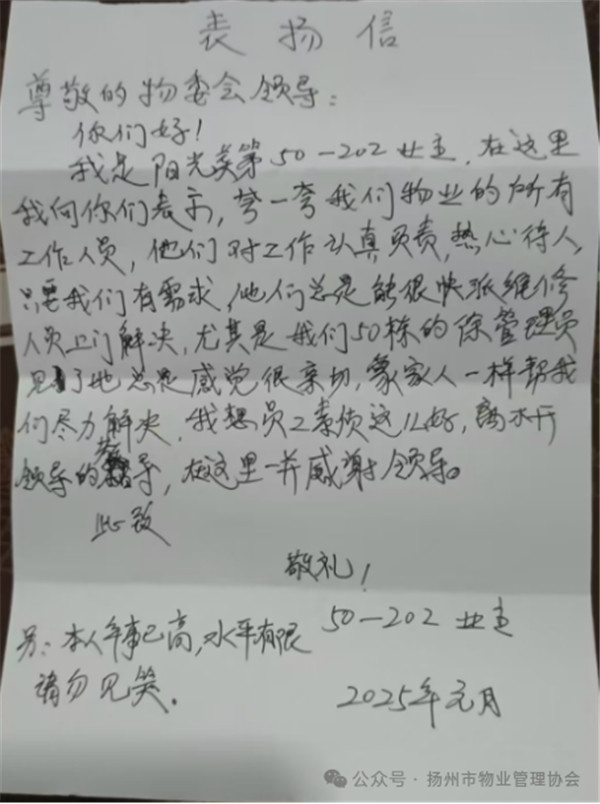 表扬信
尊敬的物委会领导:
你们好!
我是阳光美第50-202业主,在这里
我向你们表示,夸一夸我们物业的所有
工作人员,他们对工作认真负责,热心待人,
只要我们有需求,他们总是能很快派维修
人员上门解决,尤其是我们50栋的徐管理员
见了她总是感觉很亲切,象家人一样帮我
们尽力解决,我想员工素质这么好,离不开
领导的导,在这里一并感谢领导。
此致
敬礼!
50-202业主
另:本人年事已高,水平有限
请勿见笑。
2025年元月
公众号·扬州市物业管理协会